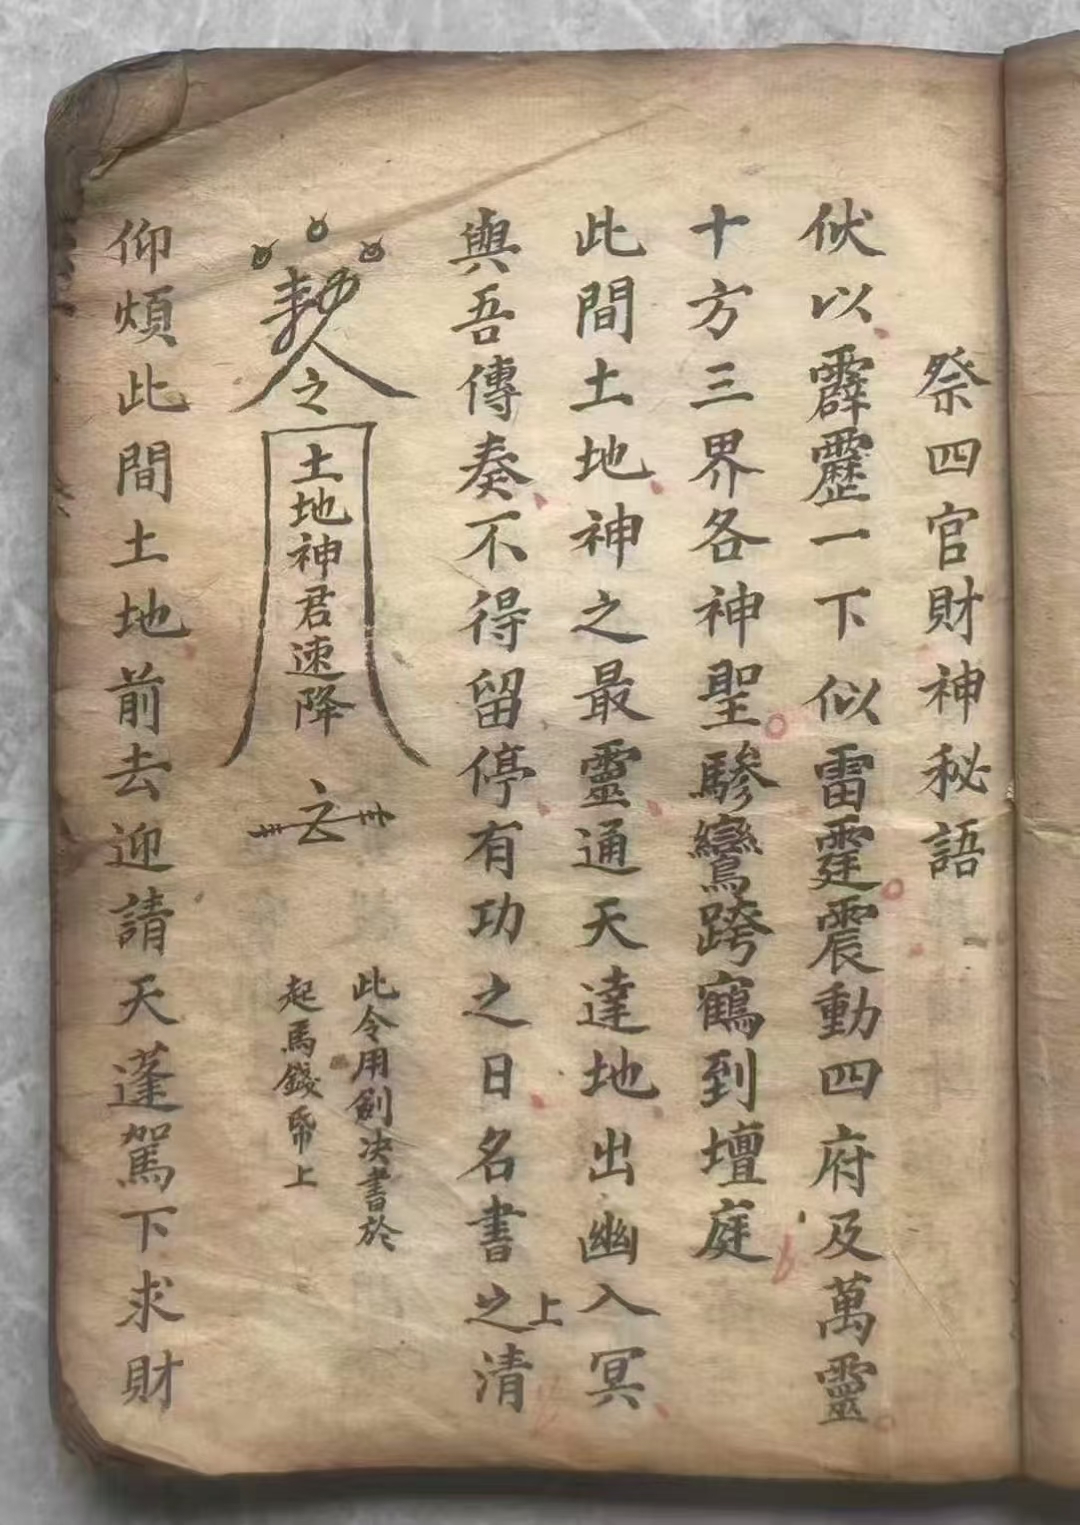 祭四官財神秘語
伏以霹靂一下似雷霆震動四府及萬靈
十方三界各神聖驂鸞跨鶴到壇庭
此間土地神之最靈通天達地出幽入冥
與吾傳奏不得留停有功之日名書之上清
此令用劍決書於
起馬錢帋上
令
之
土地神君速降
仰煩此間土地前去迎請天蓬駕下求財